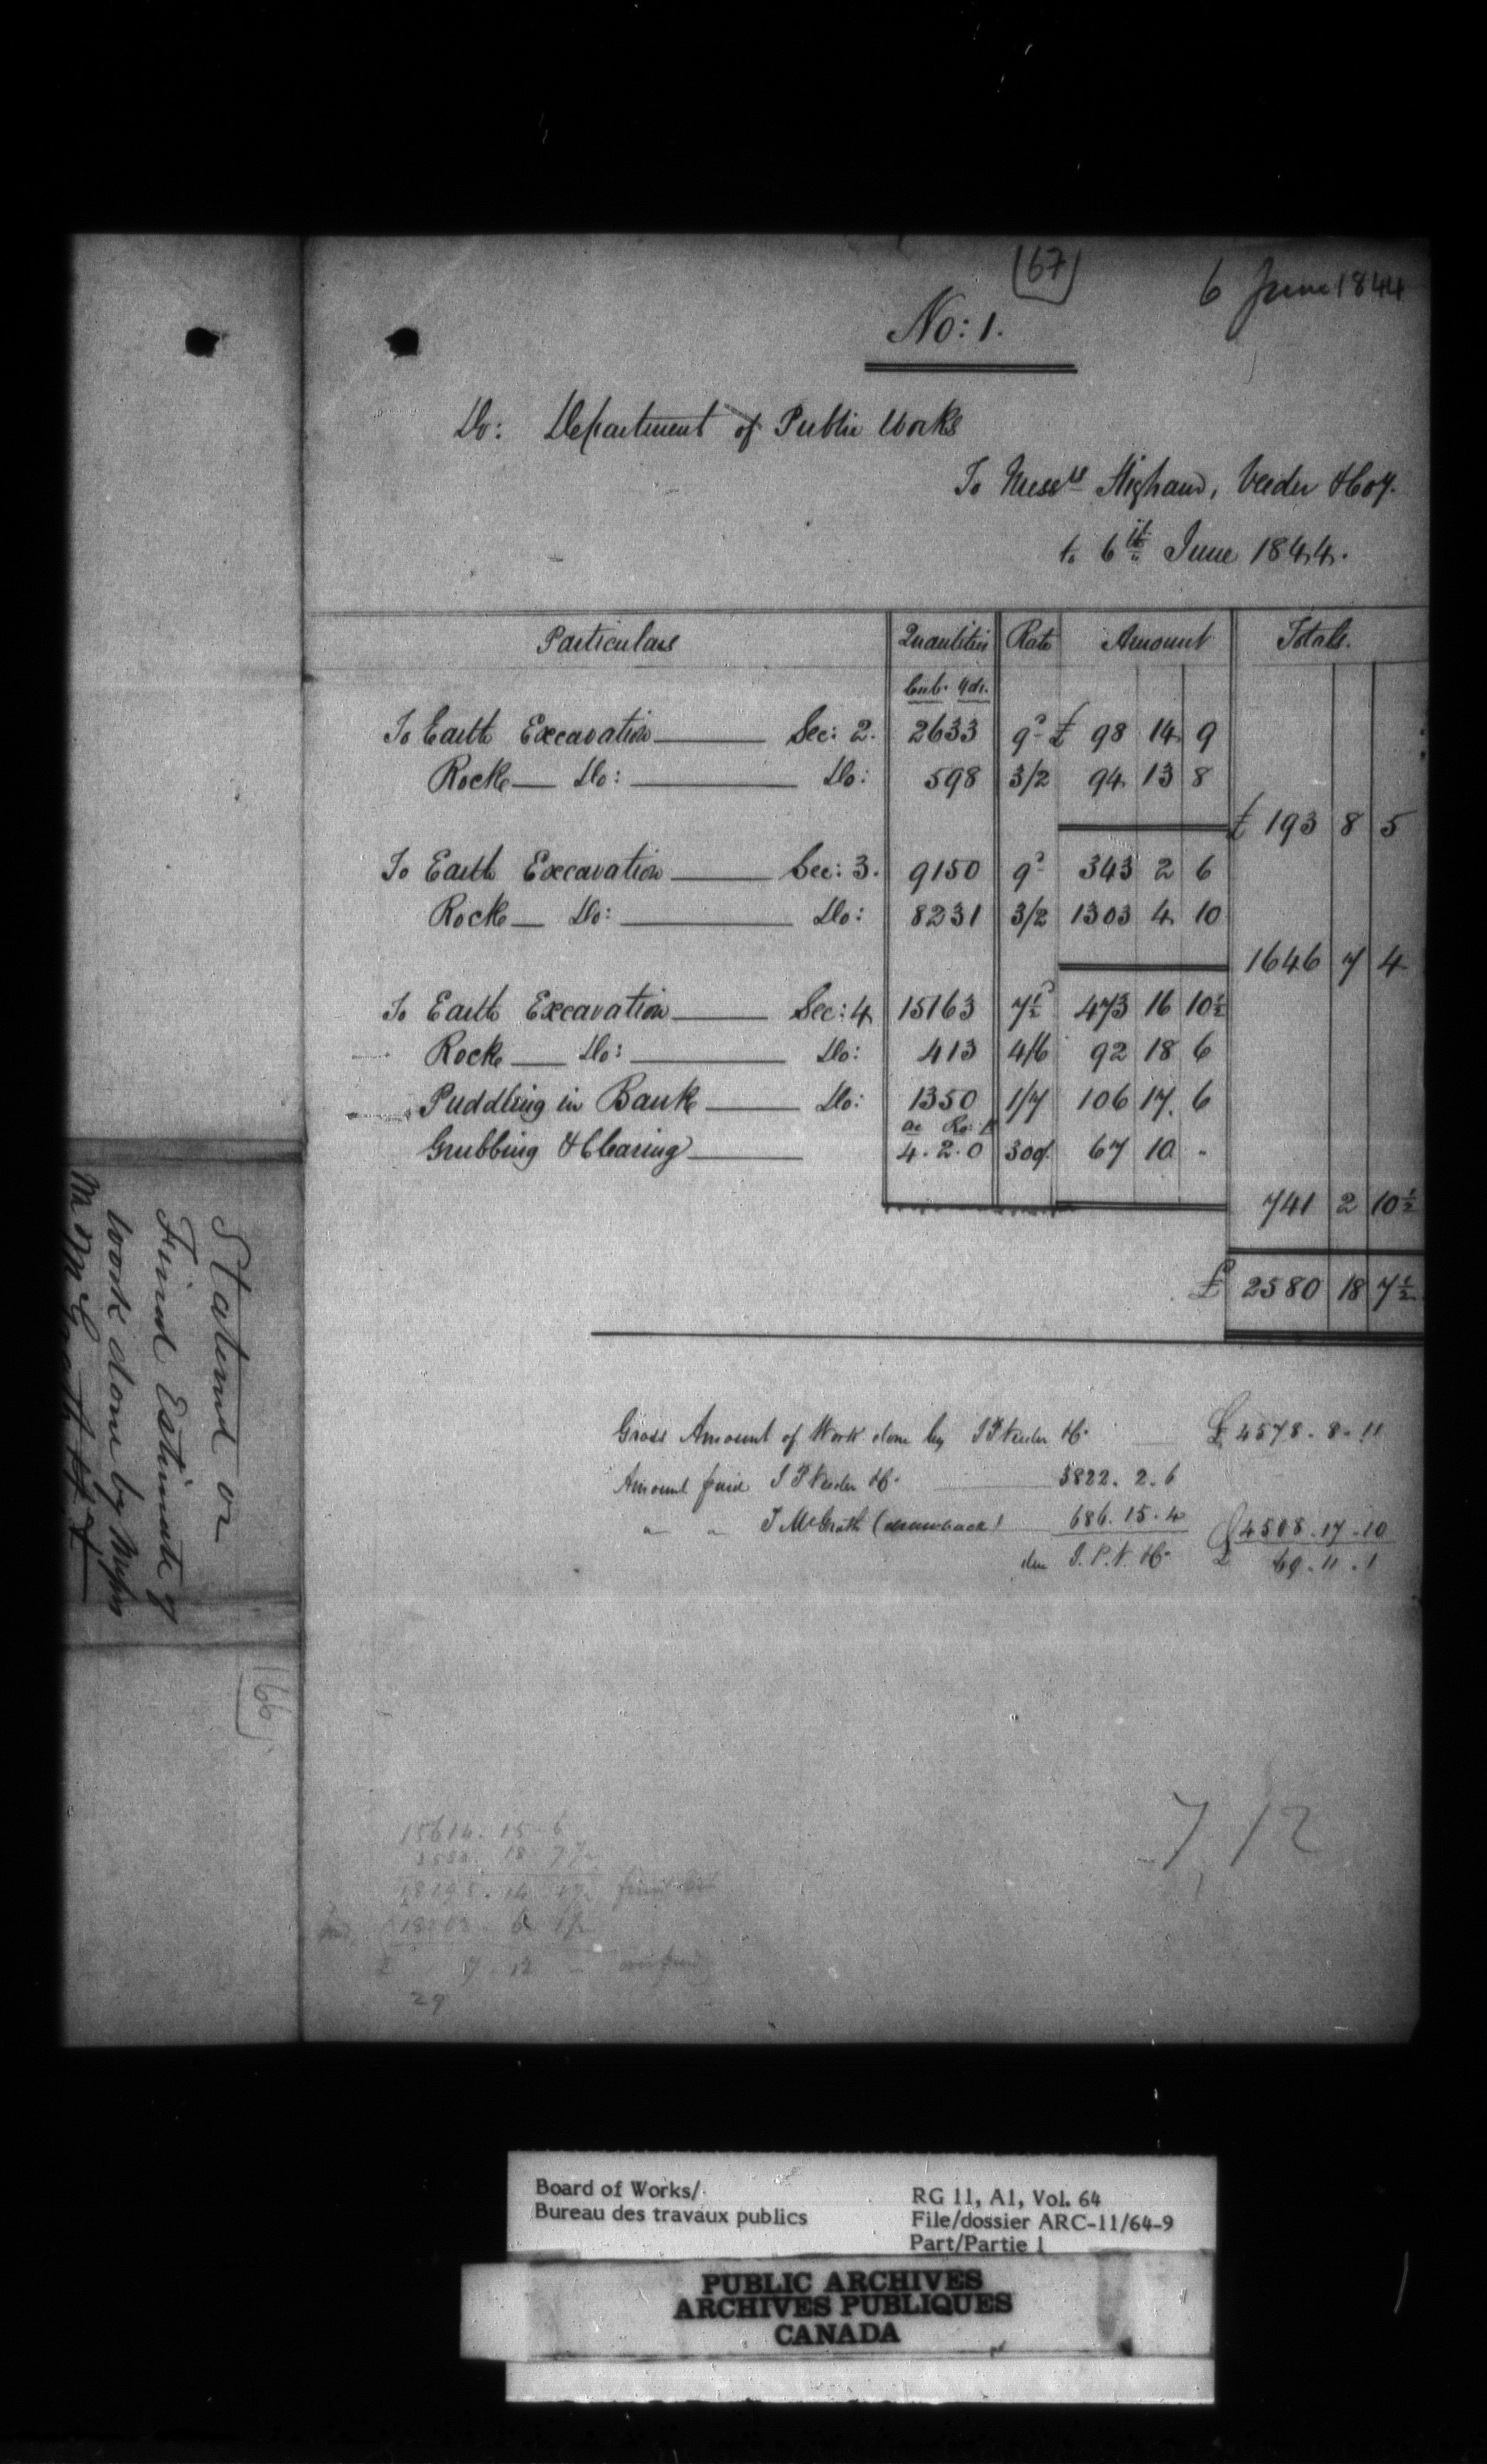 (67)
6 June 1844
No: 1.
Dr: Department of Public Works
To Messrs Higham, Veeder & Coy.
to 6th June 1844.
Particulars Quantities Rate Amount Totals.
Cub. Yds.
To Earth Excavation Sec: 2. 2633 9d £ 98 14 9
Rock Do: Do: 598 3/2 94 13 8
£ 193 8 5
To Earth Excavation Sec: 3. 9150 9d 343 2 6
Rock Do: Do: 8231 3/2 1303 4 10
1646 7 4
To Earth Excavation Sec: 4 15163 7½d 473 16 10½
Rock Do: Do: 413 4/6 92 18 6
Puddling in Bank Do: 1350 1/7 106 17. 6
ac Ro: P
Grubbing & Clearing 4. 2. 0 300/ 67 10 -
741 2 10½
£ 2580 18 7½
Gross Amount of Work done by I P Veeder & Co. £ 4578. 8. 11
Amount paid I P Veeder & Co. 3822. 2. 6
" " T McGrath (drawback) 686. 15. 4 £ 4508. 17. 10
due I. P. V. & Co. £ 69. 11. 1
Statemt or
Final Estimate of
work done by Messrs
McGrath
166
7/12
15614. 15 6
18 7½
7. 12 -
29
Board of Works/
Bureau des travaux publics
RG 11, A1, Vol. 64
File/dossier ARC-11/64-9
Part/Partie 1
PUBLIC ARCHIVES
ARCHIVES PUBLIQUES
CANADA